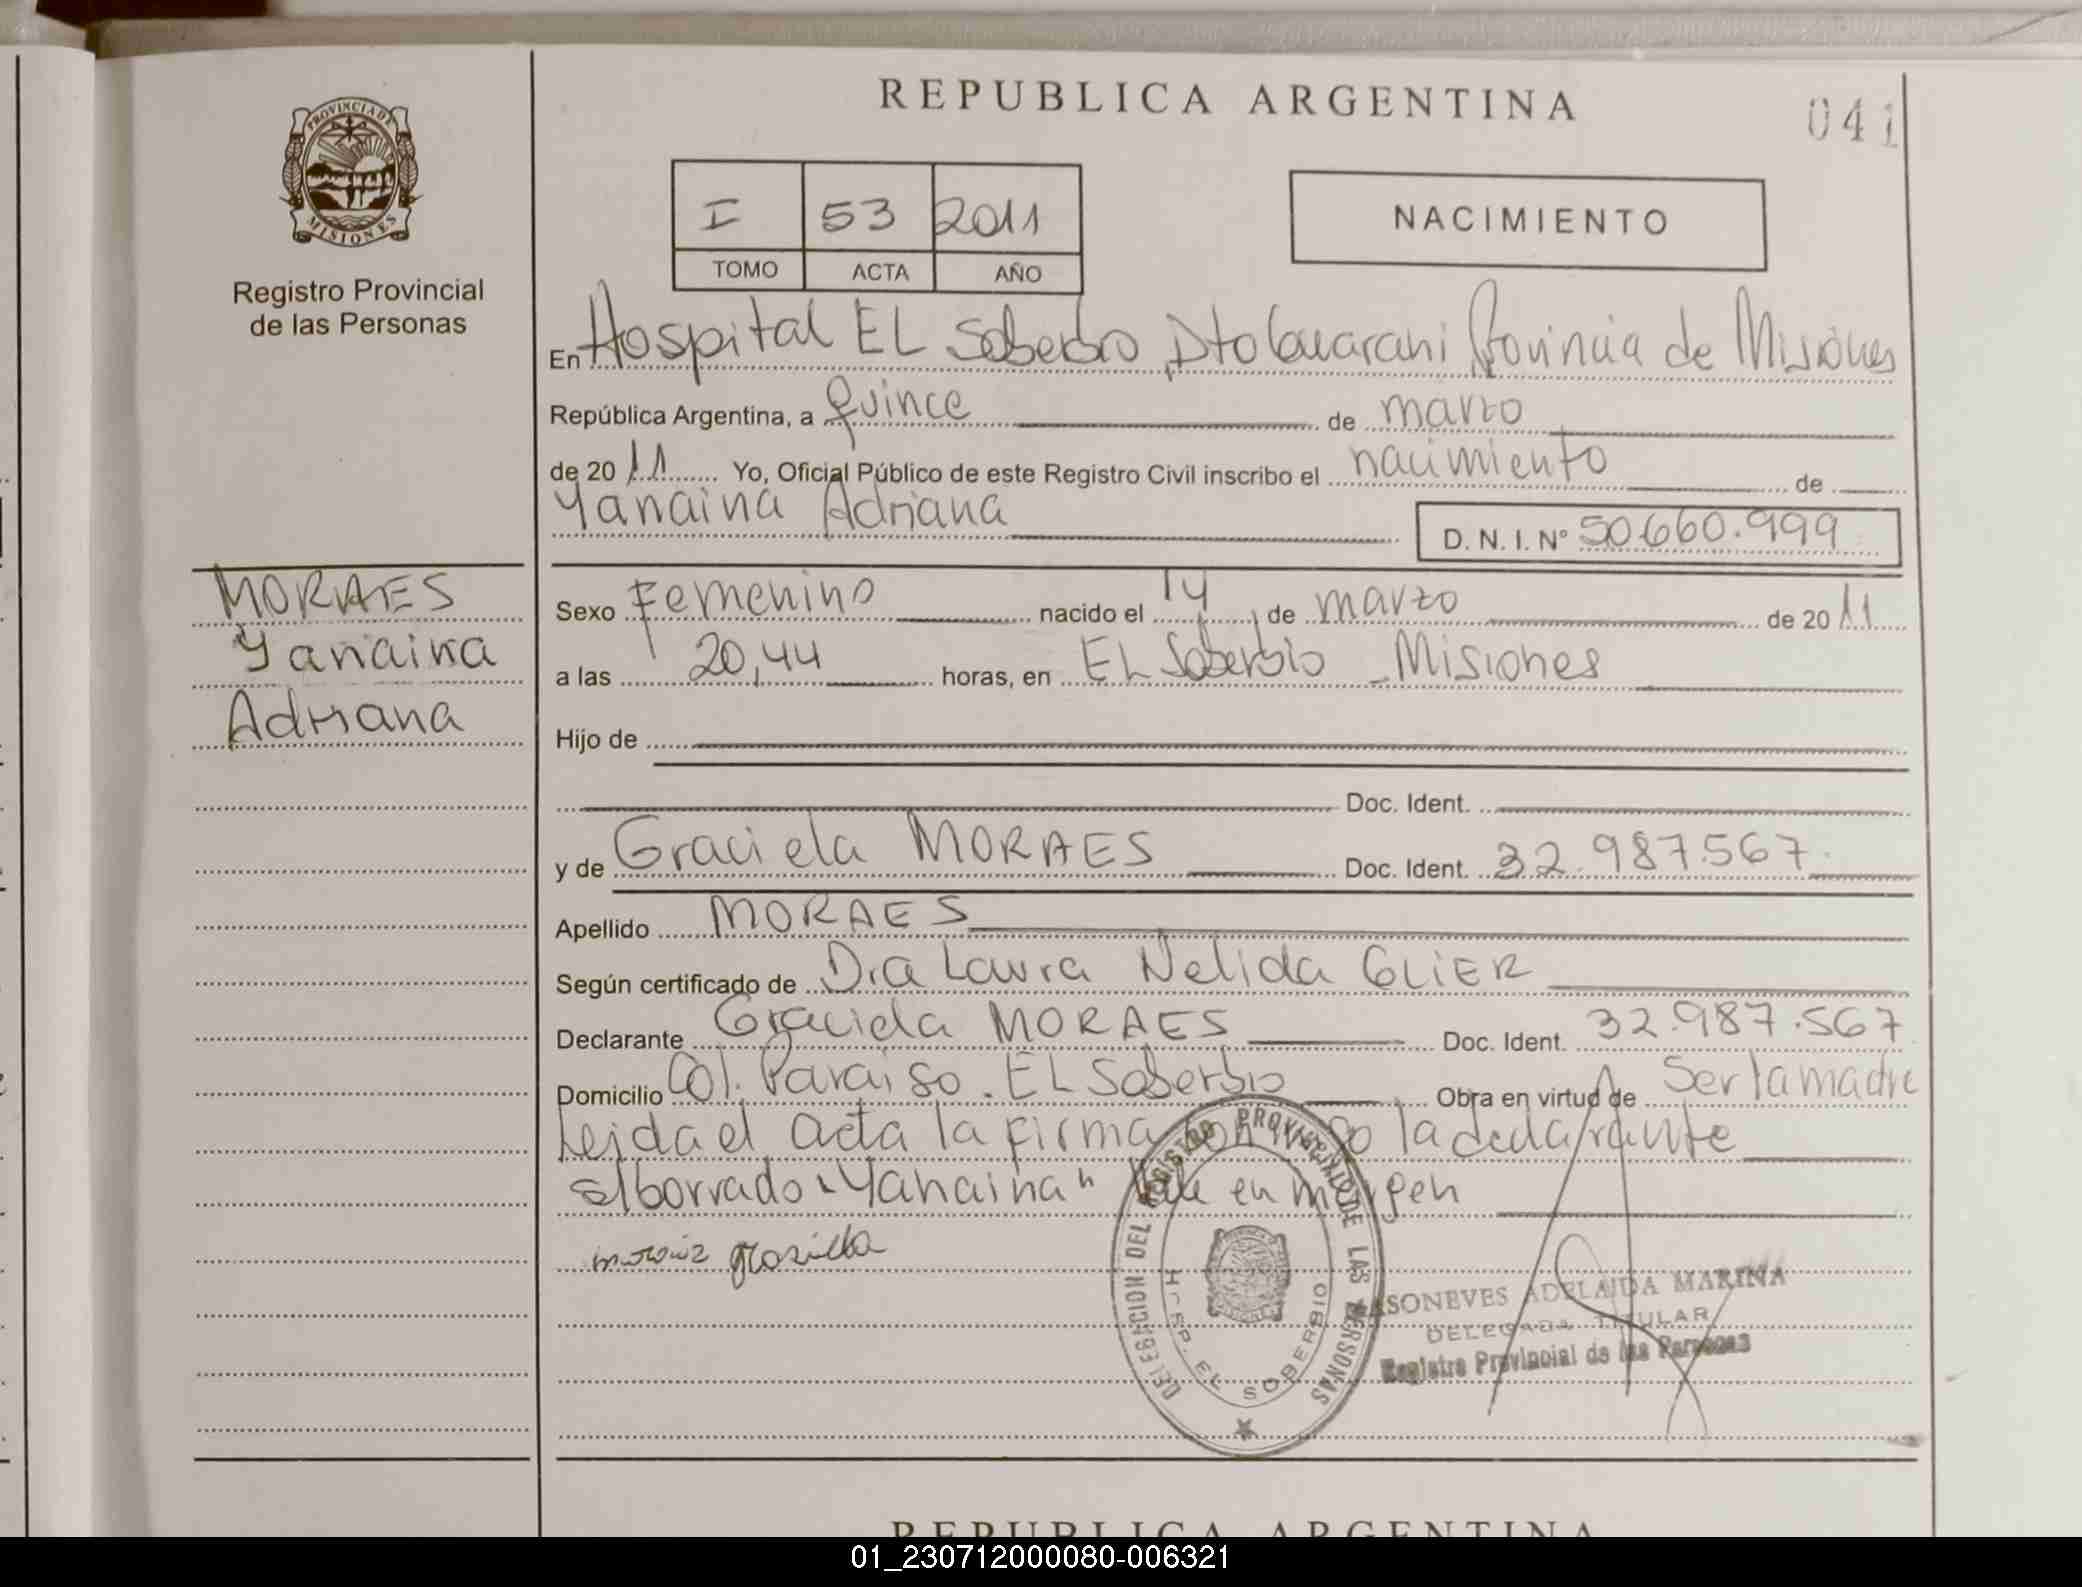 REPUBLICA ARGENTINA
041
PROVINCIA DE
MISIONES
Registro Provincial
de las Personas
I 53 2011
TOMO ACTA AÑO
NACIMIENTO
En Hospital EL Soberbio, Dto Guarani Provincia de Misiones
República Argentina, a quince de marzo
de 20 11 Yo, Oficial Público de este Registro Civil inscribo el nacimiento de
Yanaina Adriana
D. N. I. N° 50.660.999
MORAES
Yanaina
Adriana
Sexo Femenino nacido el 14 de marzo de 20 11
a las 20,44 horas, en EL Soberbio - Misiones
Hijo de
Doc. Ident.
y de Graciela MORAES Doc. Ident. 32.987.567.
Apellido MORAES
Según certificado de Dra Laura Nelida GLIER
Declarante Graciela MORAES Doc. Ident. 32.987.567
Domicilio Col. Paraiso. EL Soberbio Obra en virtud de Ser la madre
Leida el acta la firma conmigo la declarante
el borrado "Yanaina" Vale en margen
DELEGACION DEL REGISTRO PROVINCIAL DE LAS PERSONAS
HOSP. EL SOBERBIO
ADELAIDA MARINA
DELEGADA TITULAR
Registro Provincial de las Personas
REPUBLICA ARGENTINA
01_230712000080-006321